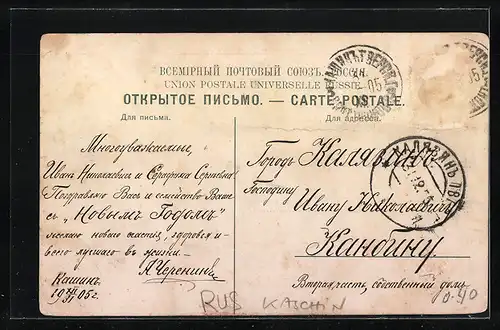 ВСЕМІРНЫЙ ПОЧТОВЫЙ СОЮЗЪ. РОССІЯ.
UNION POSTALE UNIVERSELLE. RUSSIE.
ОТКРЫТОЕ ПИСЬМО. — CARTE POSTALE.
Для письма.
Для адреса.
Многоуважаемые,
Иванъ Николаевичъ и Серафима Сергѣевна
Поздравляю Васъ и семейство Ваше
съ „Новымъ Годомъ"
желаю новаго счастья, здоровья и
всего лучшаго въ жизни.
А. Черенинъ
Кашинъ
19 XII/31 05 г.
Городъ Калязинъ
Господину
Ивану Николаевичу
Кандину.
Вторая часть, собственный домъ
КАЛЯЗИНЪ ТВ
RUS KASCHIN
0.40